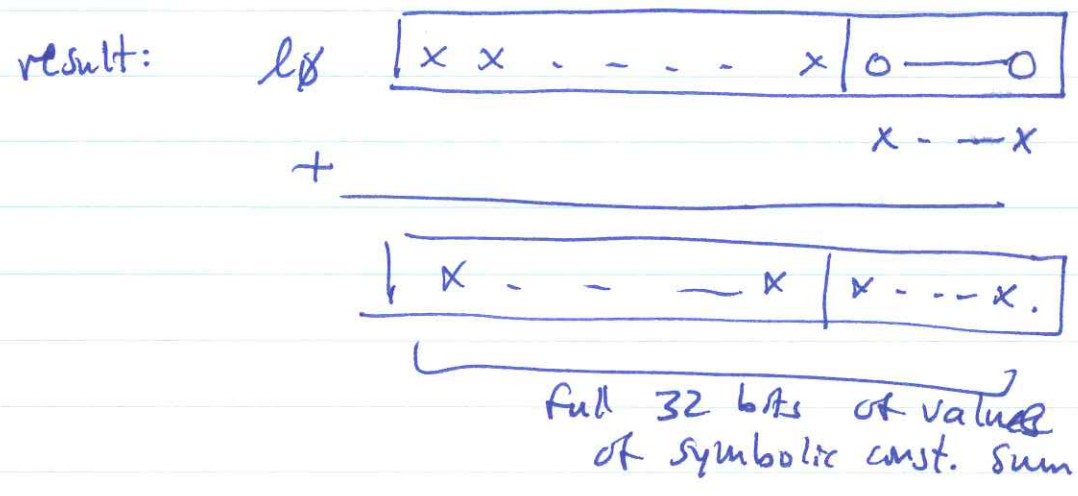 result: l0 x x . - - - - x 0——0
+ x - - x
x - - — x x - - - x.
full 32 bits of value
of symbolic const. sum